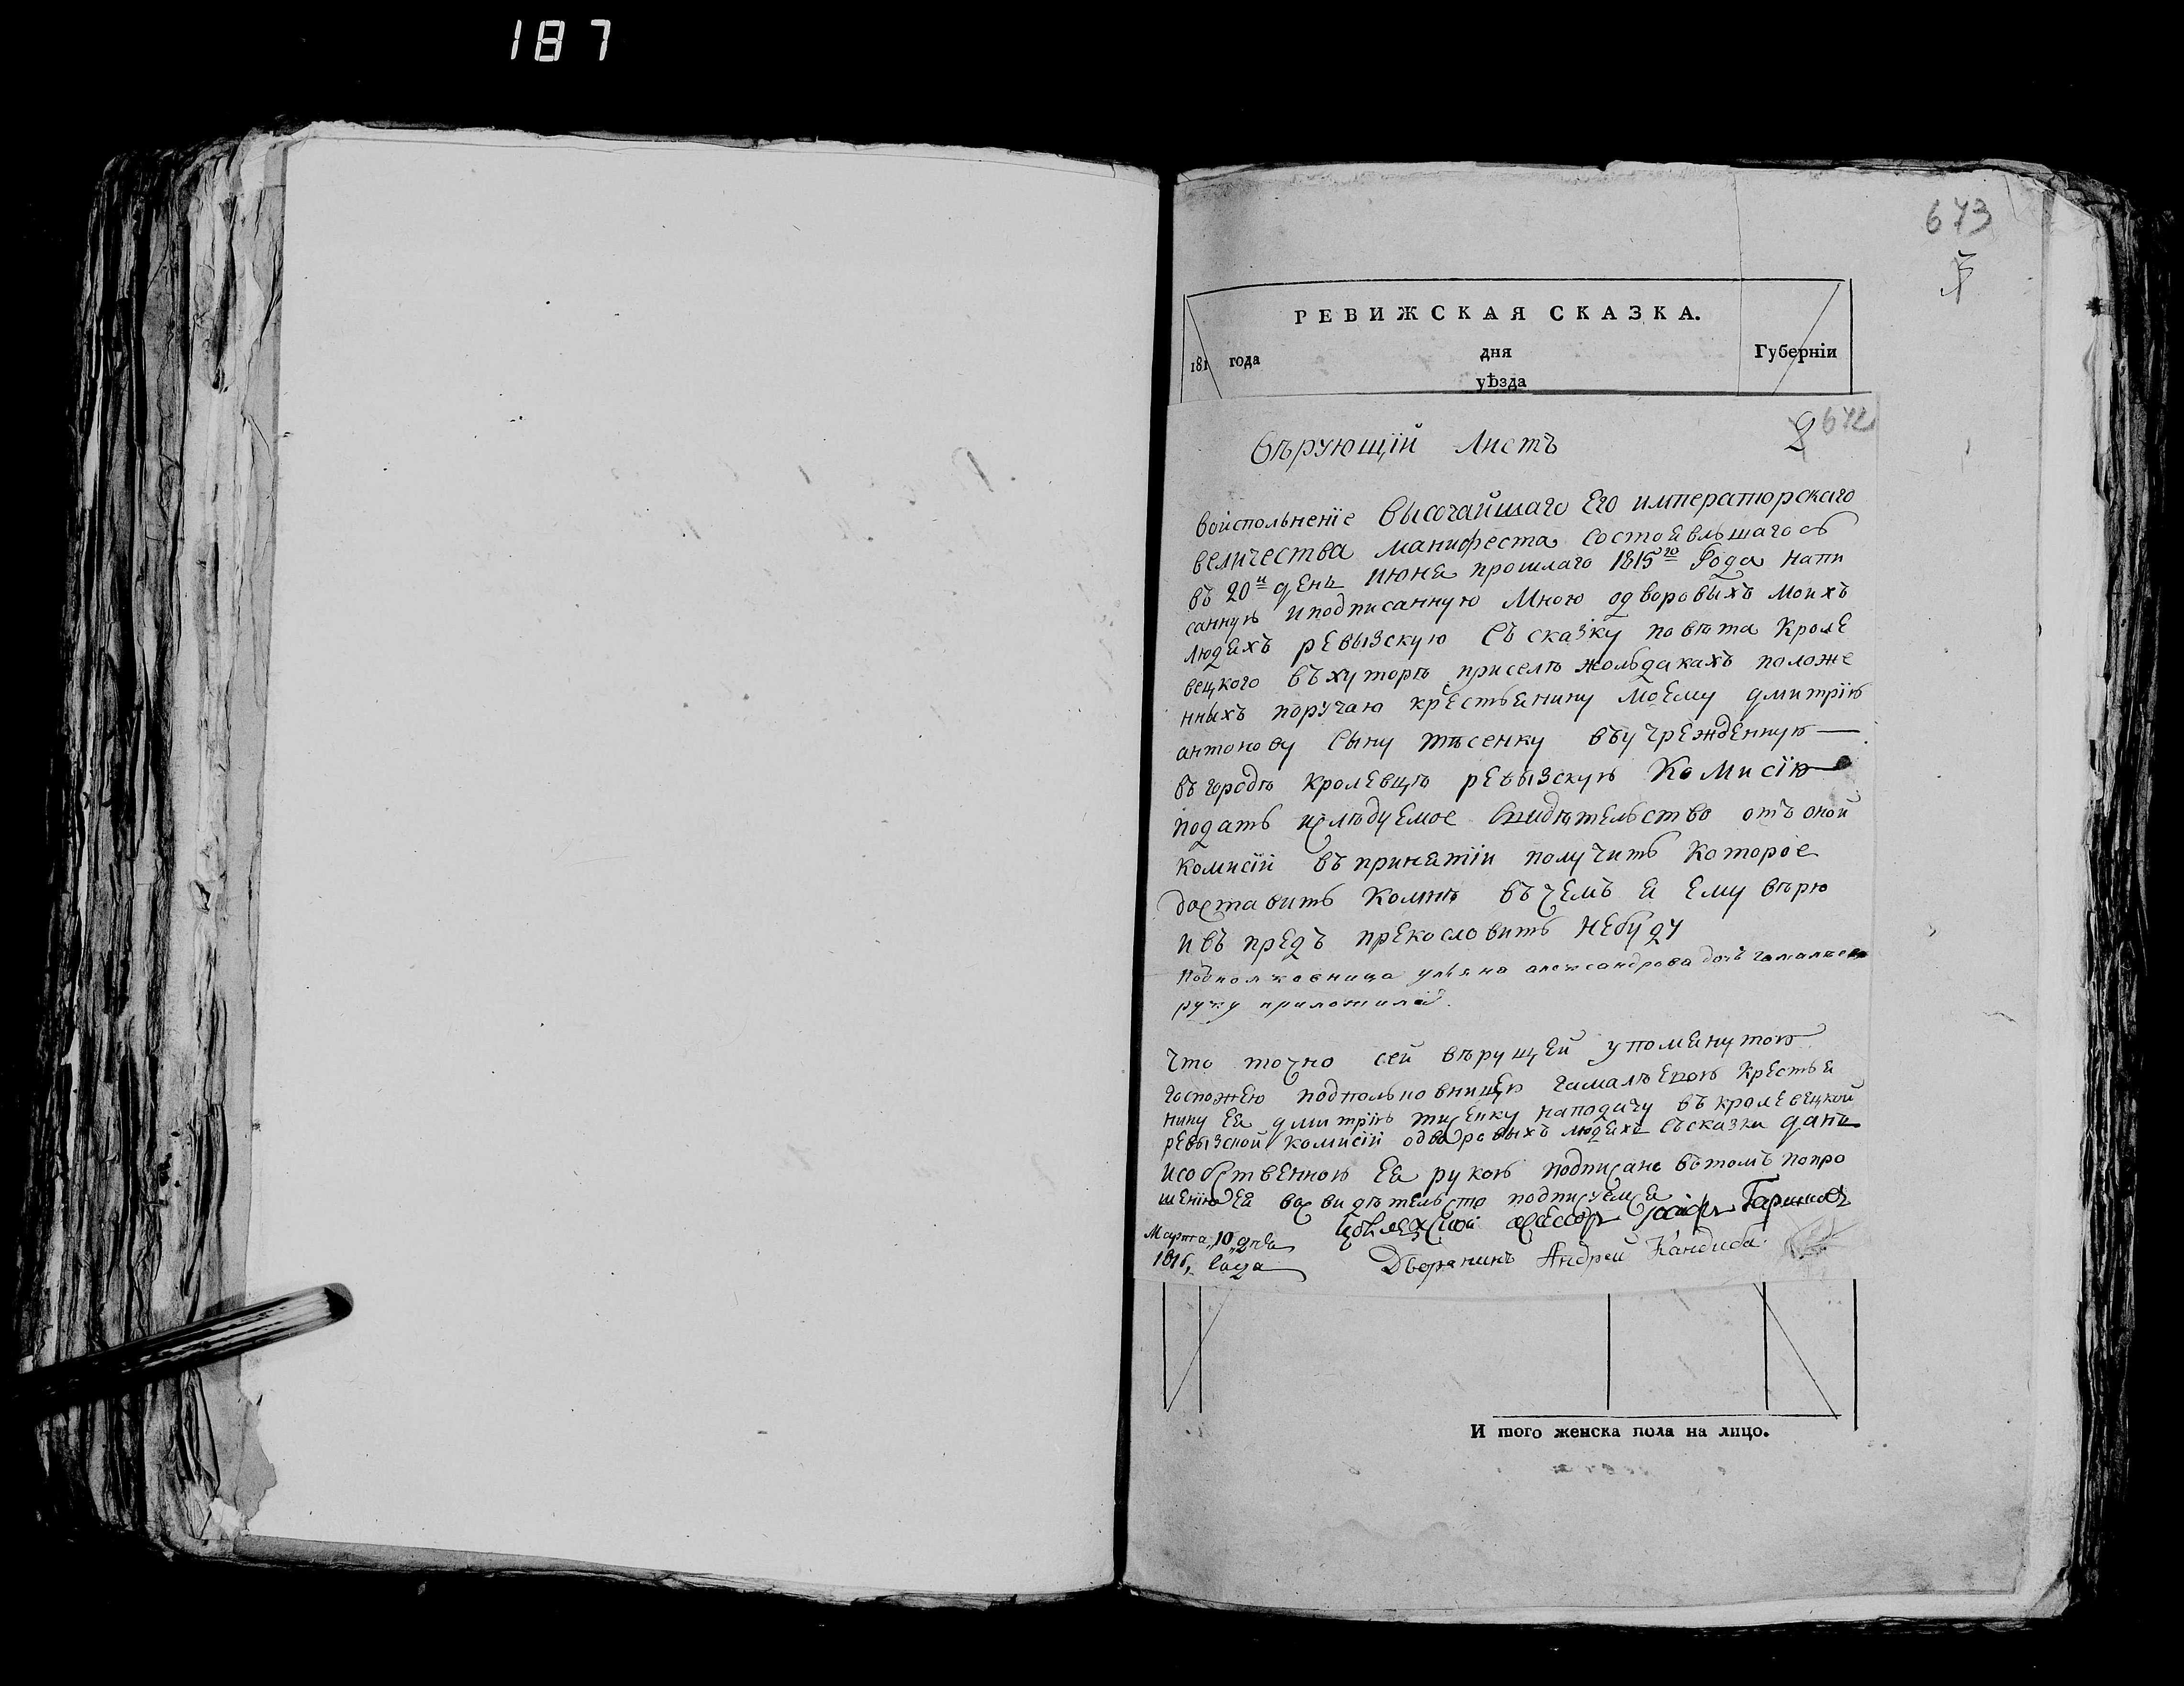 187
673
РЕВИЖСКАЯ СКАЗКА.
181 года дня Губерніи
уѣзда
2 672
Вѣрующій Листъ
воисполненіе Высочайшаго Его императорскаго
величества манифеста состоявльшагось
въ 20и день июня прошлаго 1815го Года напи
санную иподписанную Мною одворовыхъ моихъ
людяхъ ревызскую Съсказку повѣта Кроле
вецкого въхуторѣ приселѣ жольдакахъ положе
нныхъ поручаю крестьянину Моему дмитрію
антонову Сыну тѣсенку въучрежденную
въ городѣ кролевцѣ ревызскую Комисію
подать ислѣдуемое Свидѣтельство отъ оной
комисіи въ принятіи получить Которое
доставить Комнѣ въ чемъ я ему вѣрю
и въ предъ прекословить Небуду
Подполковница ульяна александрова дочь гамалеева
руку приложила.
Что точно сей вѣрущей упомянутою
госпожею подпольковницею гамалѣею Крестья
нину Ея дмитрію тисенку наподачу въ кролевецкой
ревызской комисіи одворовыхъ людяхъ съсказки данъ
исобственною Ея рукою подписанъ вътомъ попро
шенію Ея восвидѣтельство подписуемся
Марта „10„ дня
1816, Года Дворянинъ Андрей Кандиба
И того женска пола на лицо.